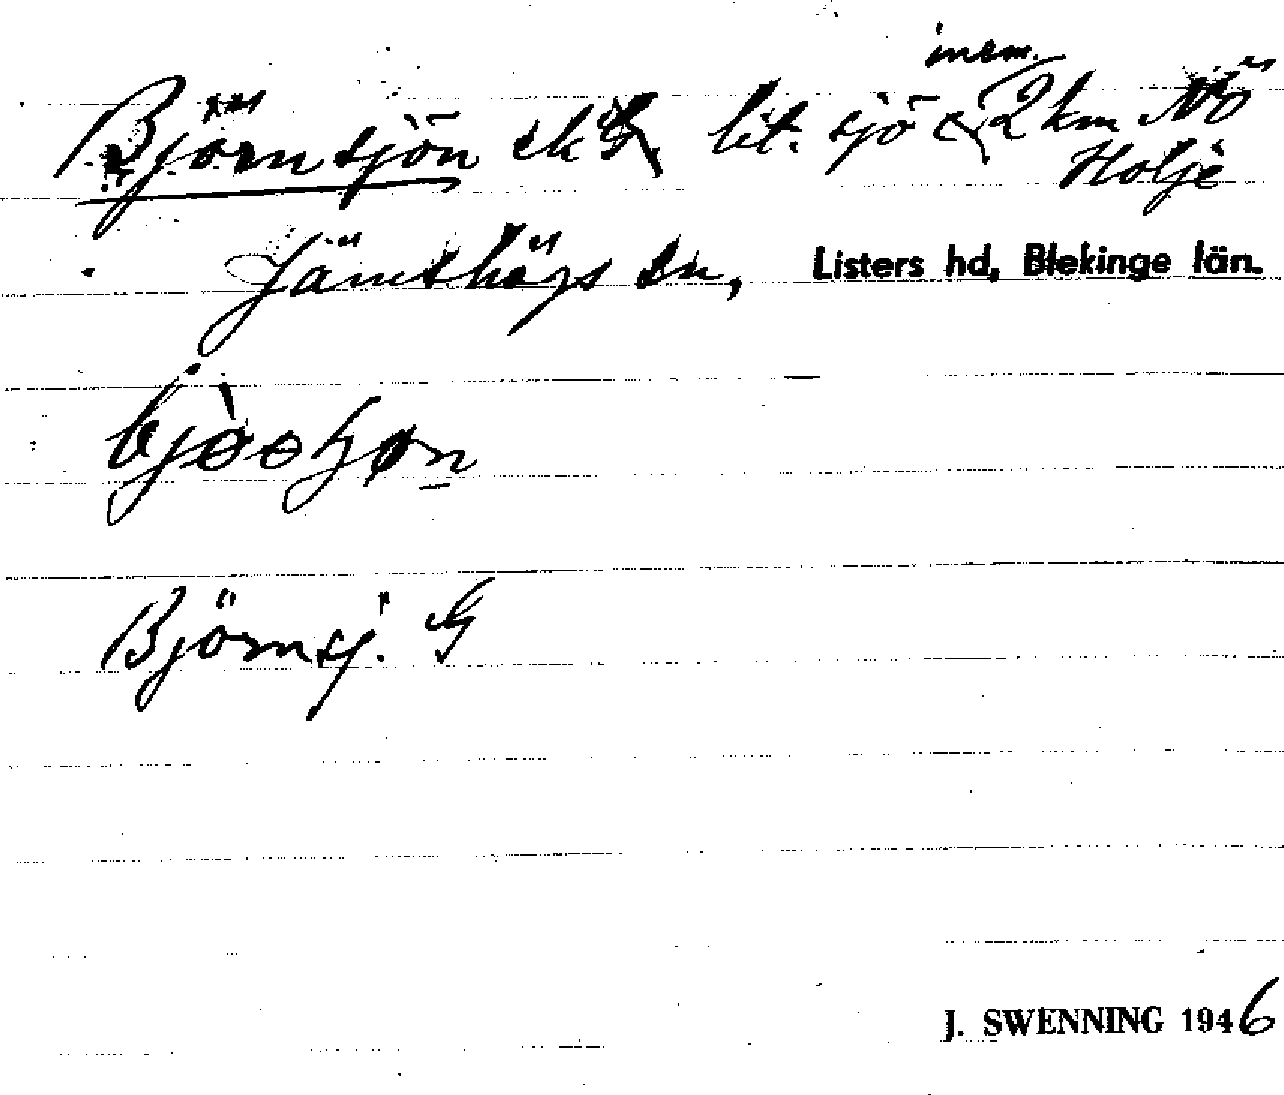 inom
Björnsjön ek G lit. sjö c. 2 km NÖ
Holje
Jämshögs sn, Listers hd, Blekinge län.
Björnsj. G
J. SWENNING 1946